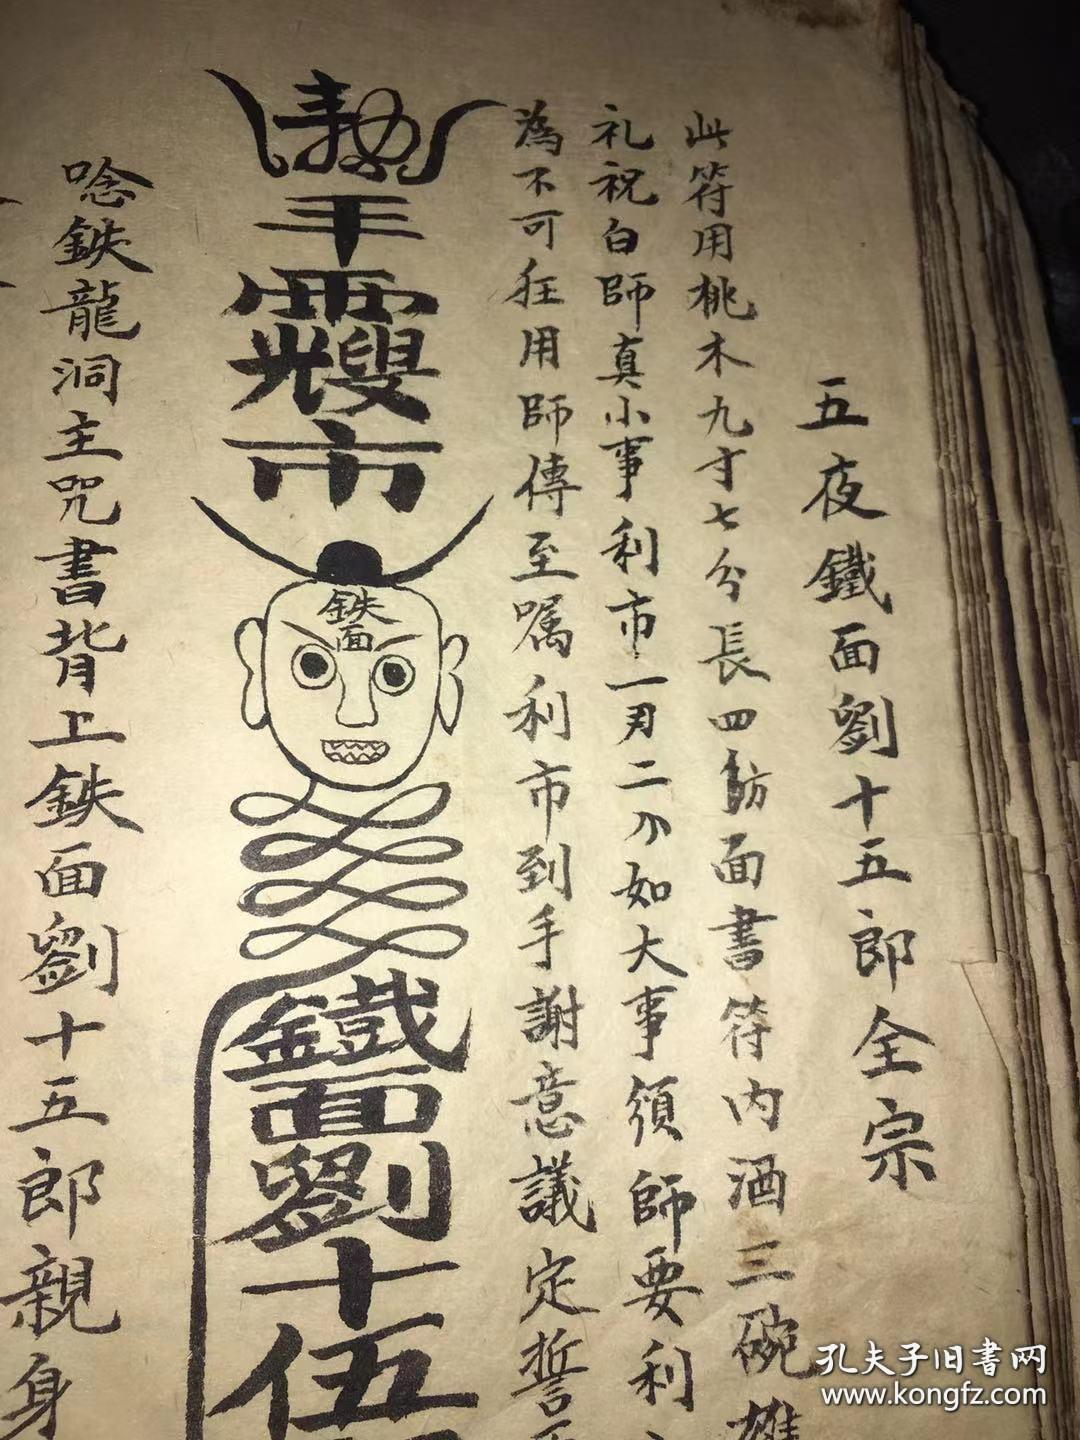 五夜鐵面劉十五郎全宗
此符用桃木九寸七分長四面書符内酒三碗雄
礼祝白師真小事利市一二如大事須師要利
為不可狂用師傳至嘱利市到手謝意議定誓
市
鉄面
鐵面劉十伍
唸鉄龍洞主咒書背上鉄面劉十五郎親身
孔夫子旧書网
www.kongfz.com